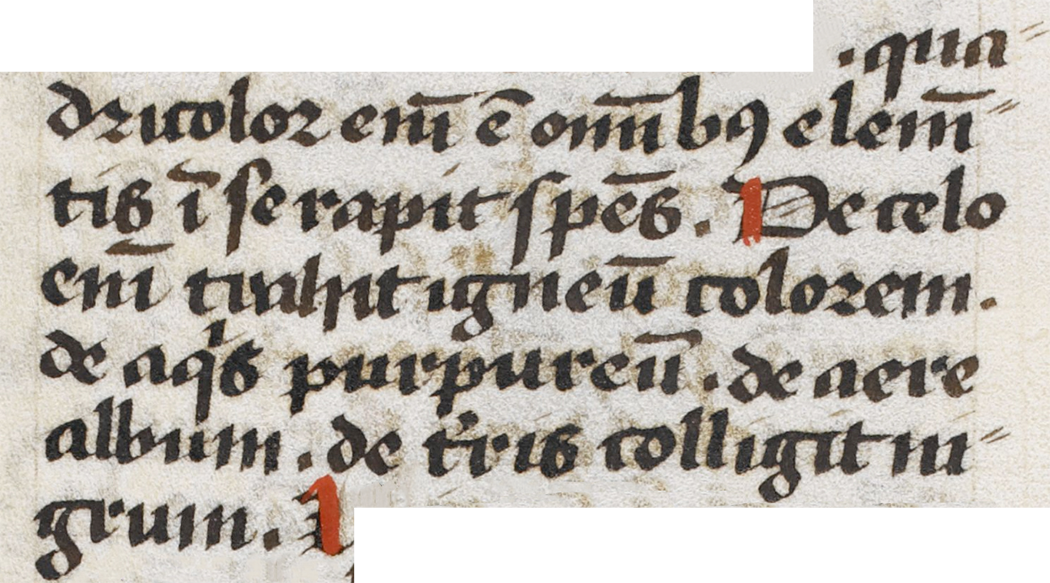 .qua⸗
dricolor eni̅ ē omi̅bꝯ elem̅⸗
tis ī se rapit spēs. De celo
eni̅ trahit igneū colorem.
de aqͥs purpureū. de aere
album. de t᷑ris colligit ni⸗
grum.